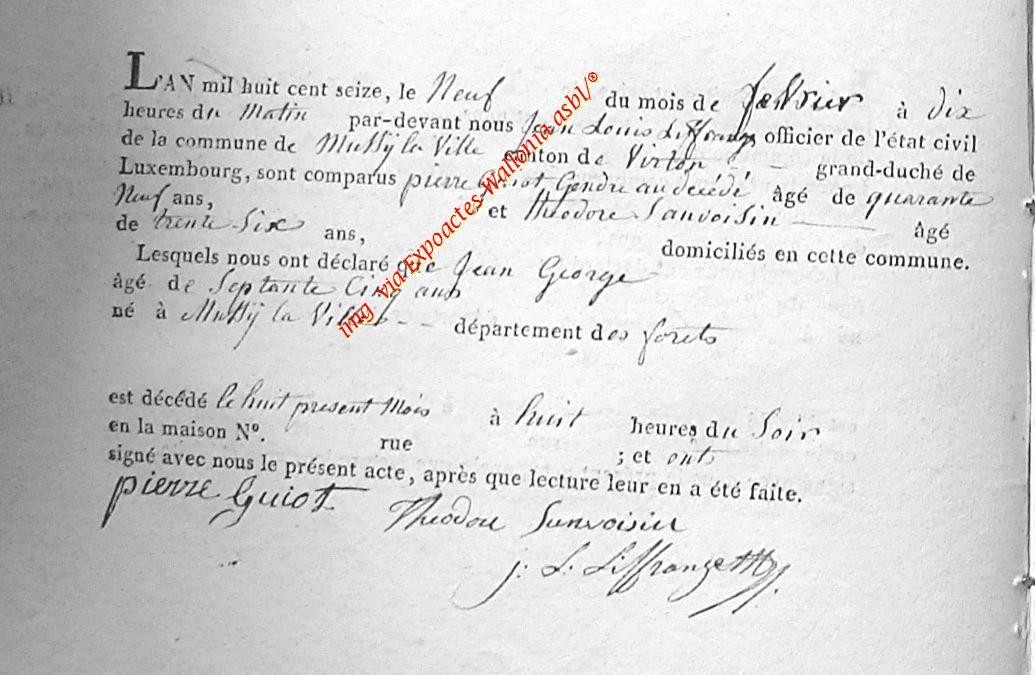 L'AN mil huit cent seize, le Neuf du mois de febvrier à dix
heures du Matin par-devant nous Jean Louis Liffrange officier de l'état civil
de la commune de Mussÿ la Ville canton de Virton grand-duché de
Luxembourg, sont comparus pierre Guiot Gendre au décédé âgé de quarante
Neuf ans, et théodore Sanvoisin âgé
de trente Six ans, domiciliés en cette commune.
Lesquels nous ont déclaré que Jean George
âgé de Septante Cinq ans
né à Mussÿ la Ville département des forets
est décédé le huit present Mois à huit heures du Soir
en la maison Nº. rue ; et onts
signé avec nous le présent acte, après que lecture leur en a été faite.
pierre Guiot Theodore Sanvoisin
j: L: Liffrange
img via Expoactes Wallonia asbl/®